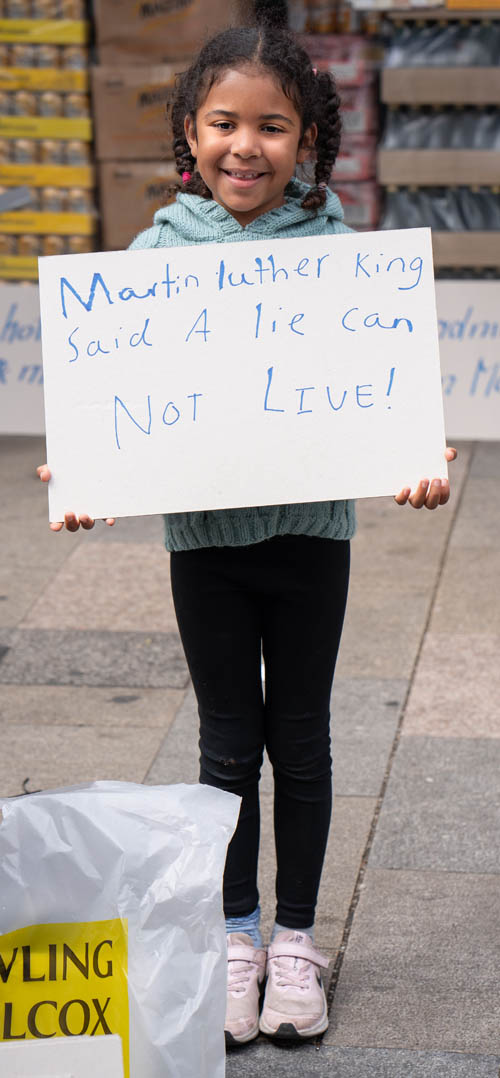 Martin luther King
Said A lie can
NOT LIVE!